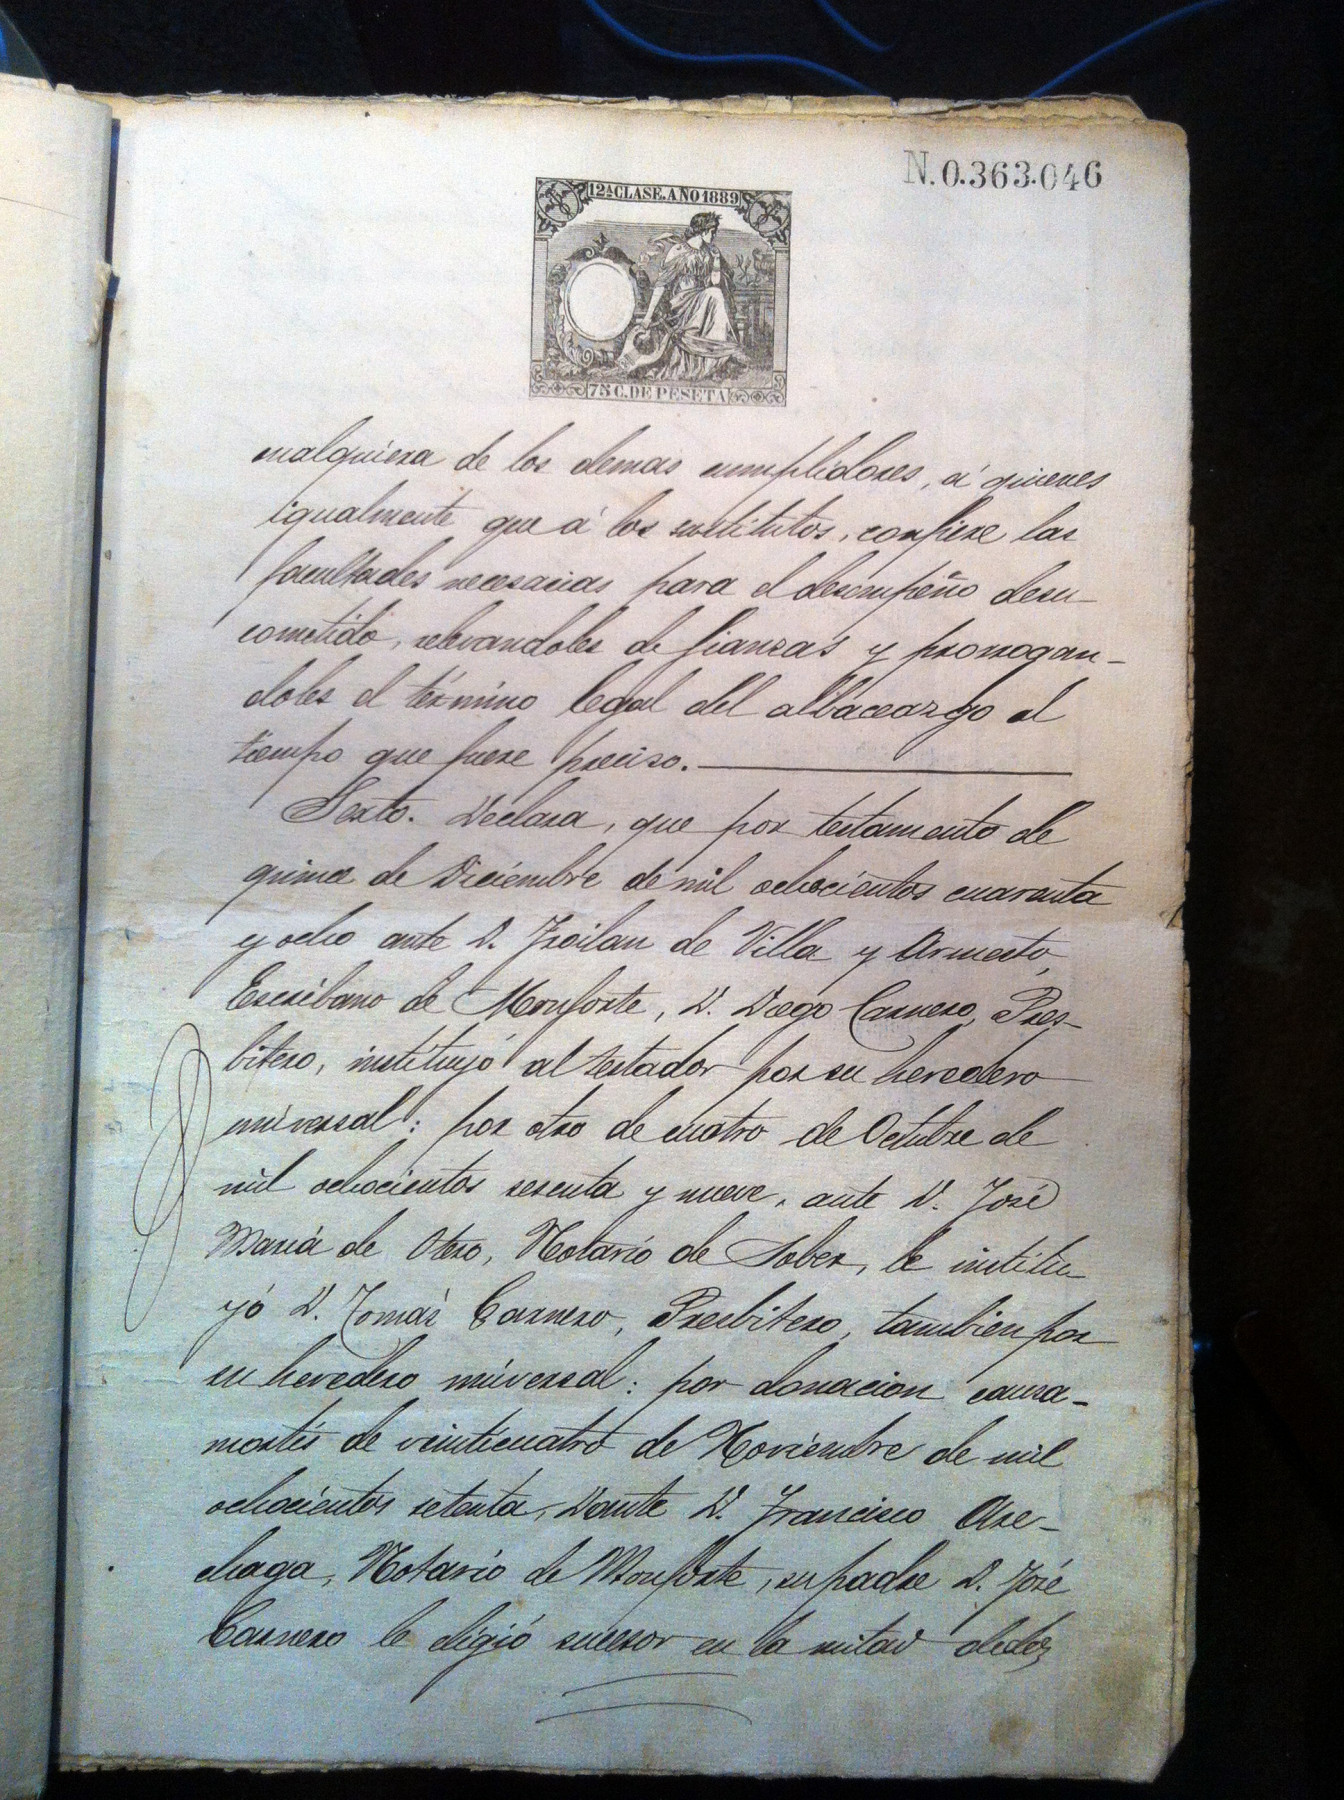 N.0.363.046
12ª CLASE. AÑO 1889
75 C. DE PESETA
cualquiera de los demas cumplidores, á quienes
igualmente que á los sustitutos, confiere las
facultades necesarias para el desempeño desu
cometido, relevandoles de fianzas y prorrogan-
doles el término legal del albaceazgo al
tiempo que fuere preciso.
Sexto. Declara, que por testamento de
quince de Diciembre de mil ochocientos cuarenta
y ocho ante D. Froilan de Villa y Armesto,
Escribano de Monforte, D. Diego Carnero, Pres-
bitero, instituyó al testador por su heredero
universal: por otro de cuatro de Octubre de
mil ochocientos sesenta y nueve, ante D. José
María de Otero, Notario de Sober, le institu
yó D. Tomás Carnero, Presbitero, tambien por
su heredero universal: por donacion causa-
mortis de veinticuatro de Noviembre de mil
ochocientos setenta, ante D. Francisco Are-
chaga, Notario de Monforte, su padre D. José
Carnero le eligió sucesor en la mitad